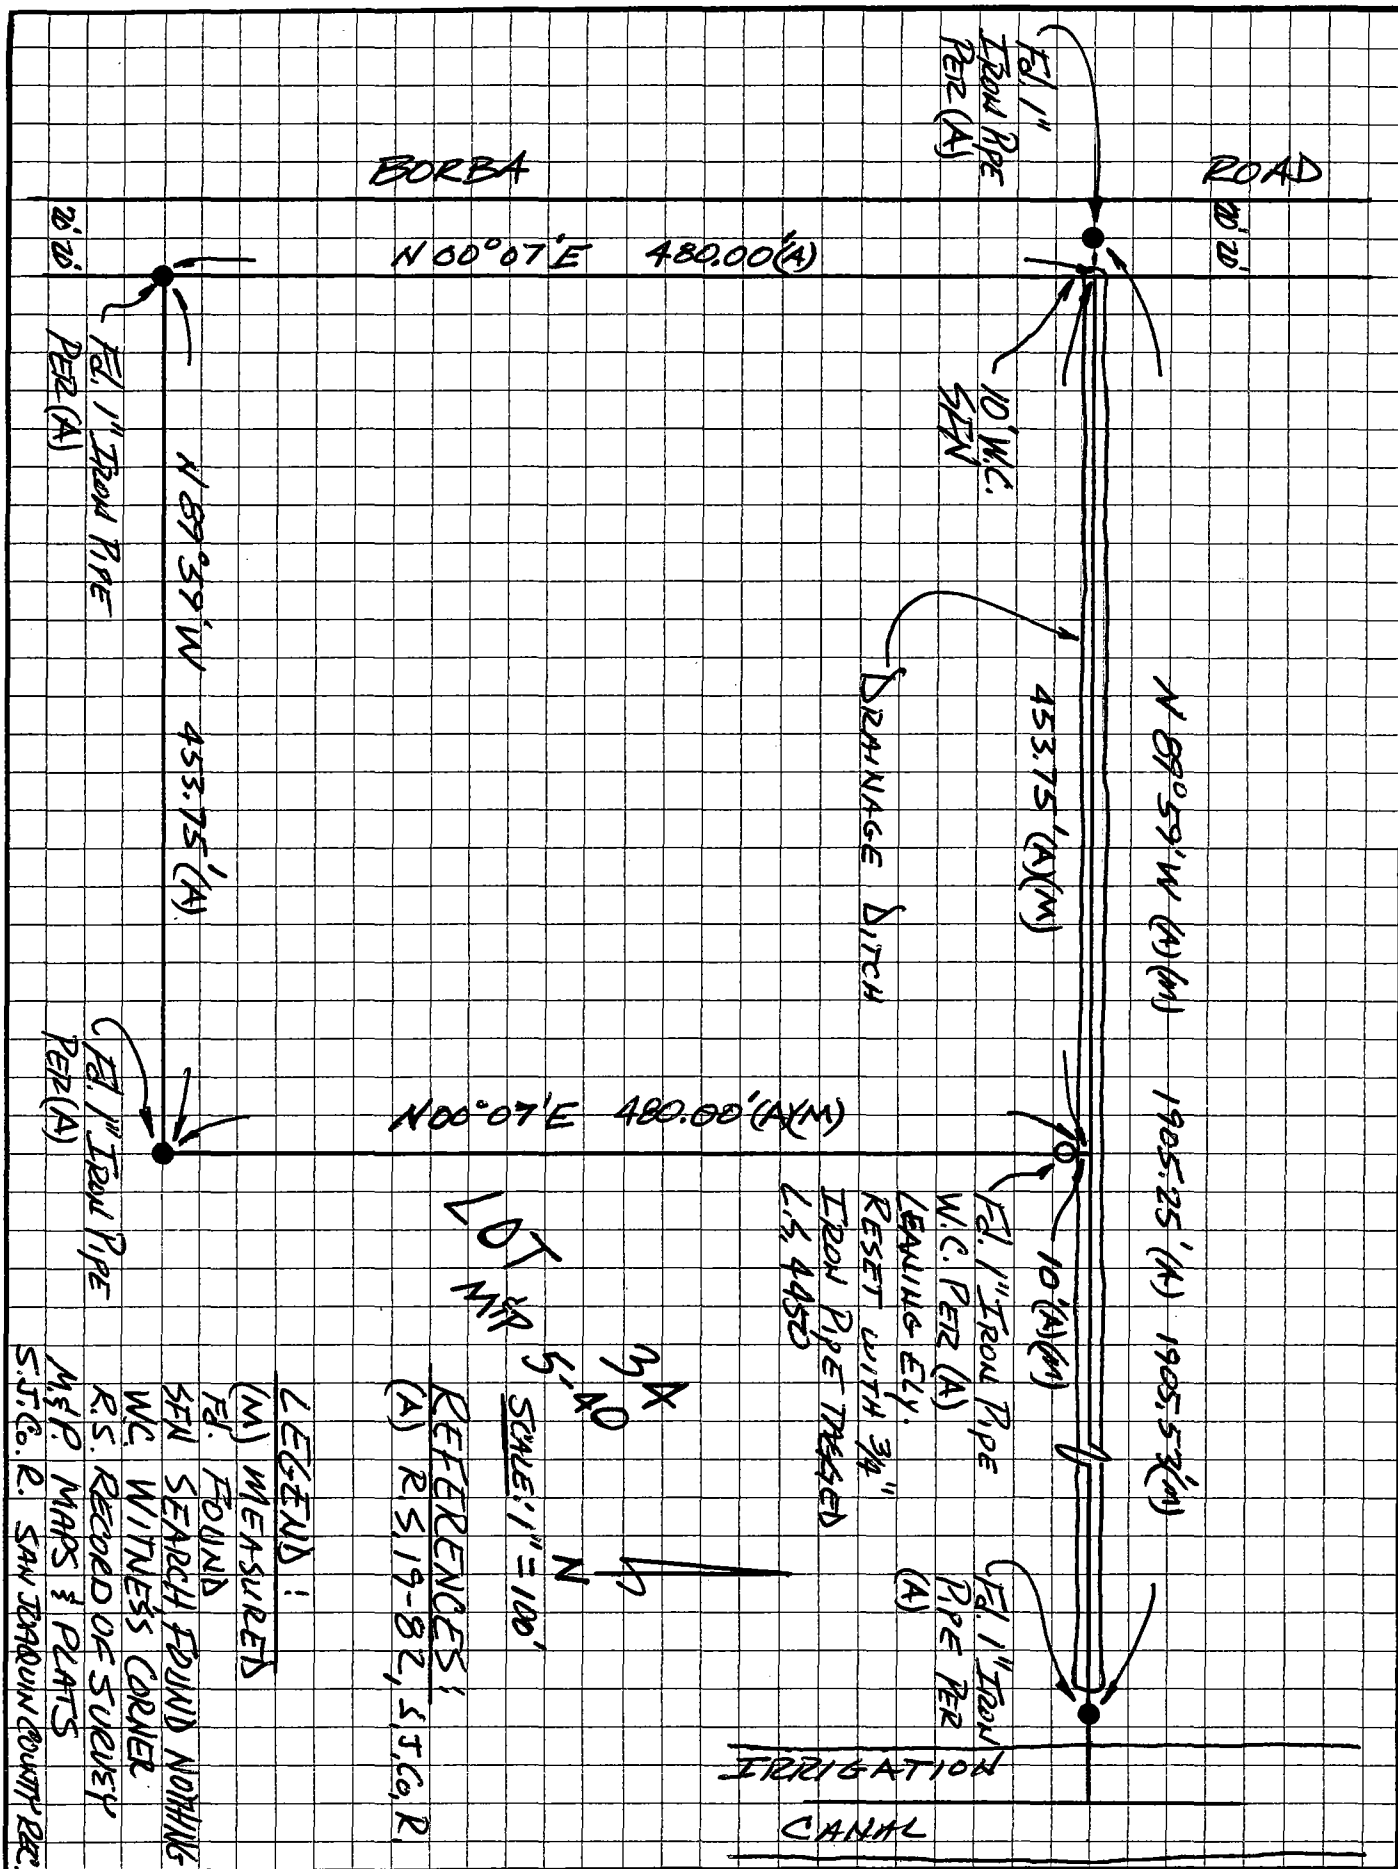 BORBA
ROAD
Fd. 1"
IRON PIPE
PER (A)
20' 20'
20' 20'
N 00°07'E 480.00'(A)
10' W.C.
SFN
Fd. 1" IRON PIPE
PER (A)
N 89°59'W 453.75'(A)
DRAINAGE DITCH
453.75'(A)(M)
N 89°59'W (A)(M) 1905.25'(A) 1905.53'(M)
N 00°07'E 480.00'(A)(M)
Fd. 1" IRON PIPE
PER (A)
10'(A)(M)
Fd. 1" IRON PIPE
W.C. PER (A)
LEANING ELY.
RESET WITH 3/4"
IRON PIPE TAGGED
L.S. 4450
Fd. 1" IRON
PIPE PER
(A)
LOT 3A
M&P 5-40
SCALE: 1" = 100'
N
REFERENCES:
(A) R.S. 19-82, S.J.Co.R.
LEGEND:
(M) MEASURED
Fd. FOUND
SFN SEARCH FOUND NOTHING
W.C. WITNESS CORNER
R.S. RECORD OF SURVEY
M.&P. MAPS & PLATS
S.J.Co.R. SAN JOAQUIN COUNTY REC.
IRRIGATION
CANAL